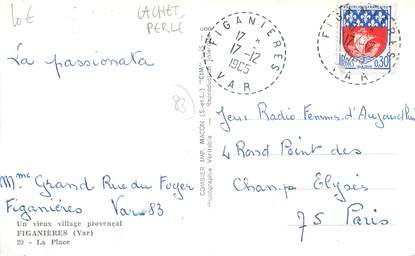 10€
CACHET
PERLÉ
FIGANIÈRES
17 H
17-12
1965
VAR
PARIS
0,30
83
La passionata
COMBIER IMP. MACON (S.-et-L.) "CIM"
Jeux Radio Femmes d'Aujourd'hui
4 Rond Point des
Champs Elysées
75 Paris
Mme Grand Rue du Foyer
Figanières Var 83
Un vieux village provençal
FIGANIÈRES (Var)
20 - La Place